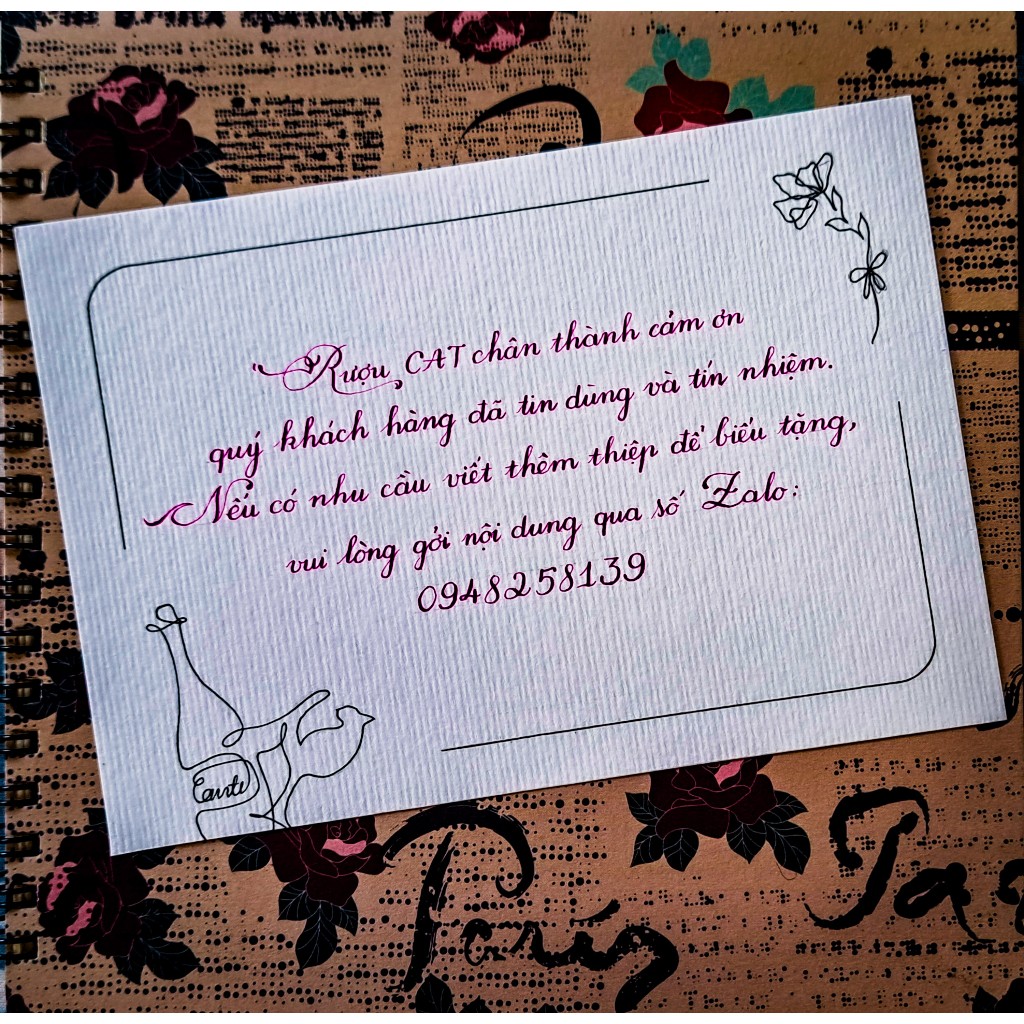 Rượu CAT chân thành cảm ơn
quý khách hàng đã tin dùng và tín nhiệm.
Nếu có nhu cầu viết thêm thiệp để biếu tặng,
vui lòng gởi nội dung qua số Zalo:
0948258139
Paris